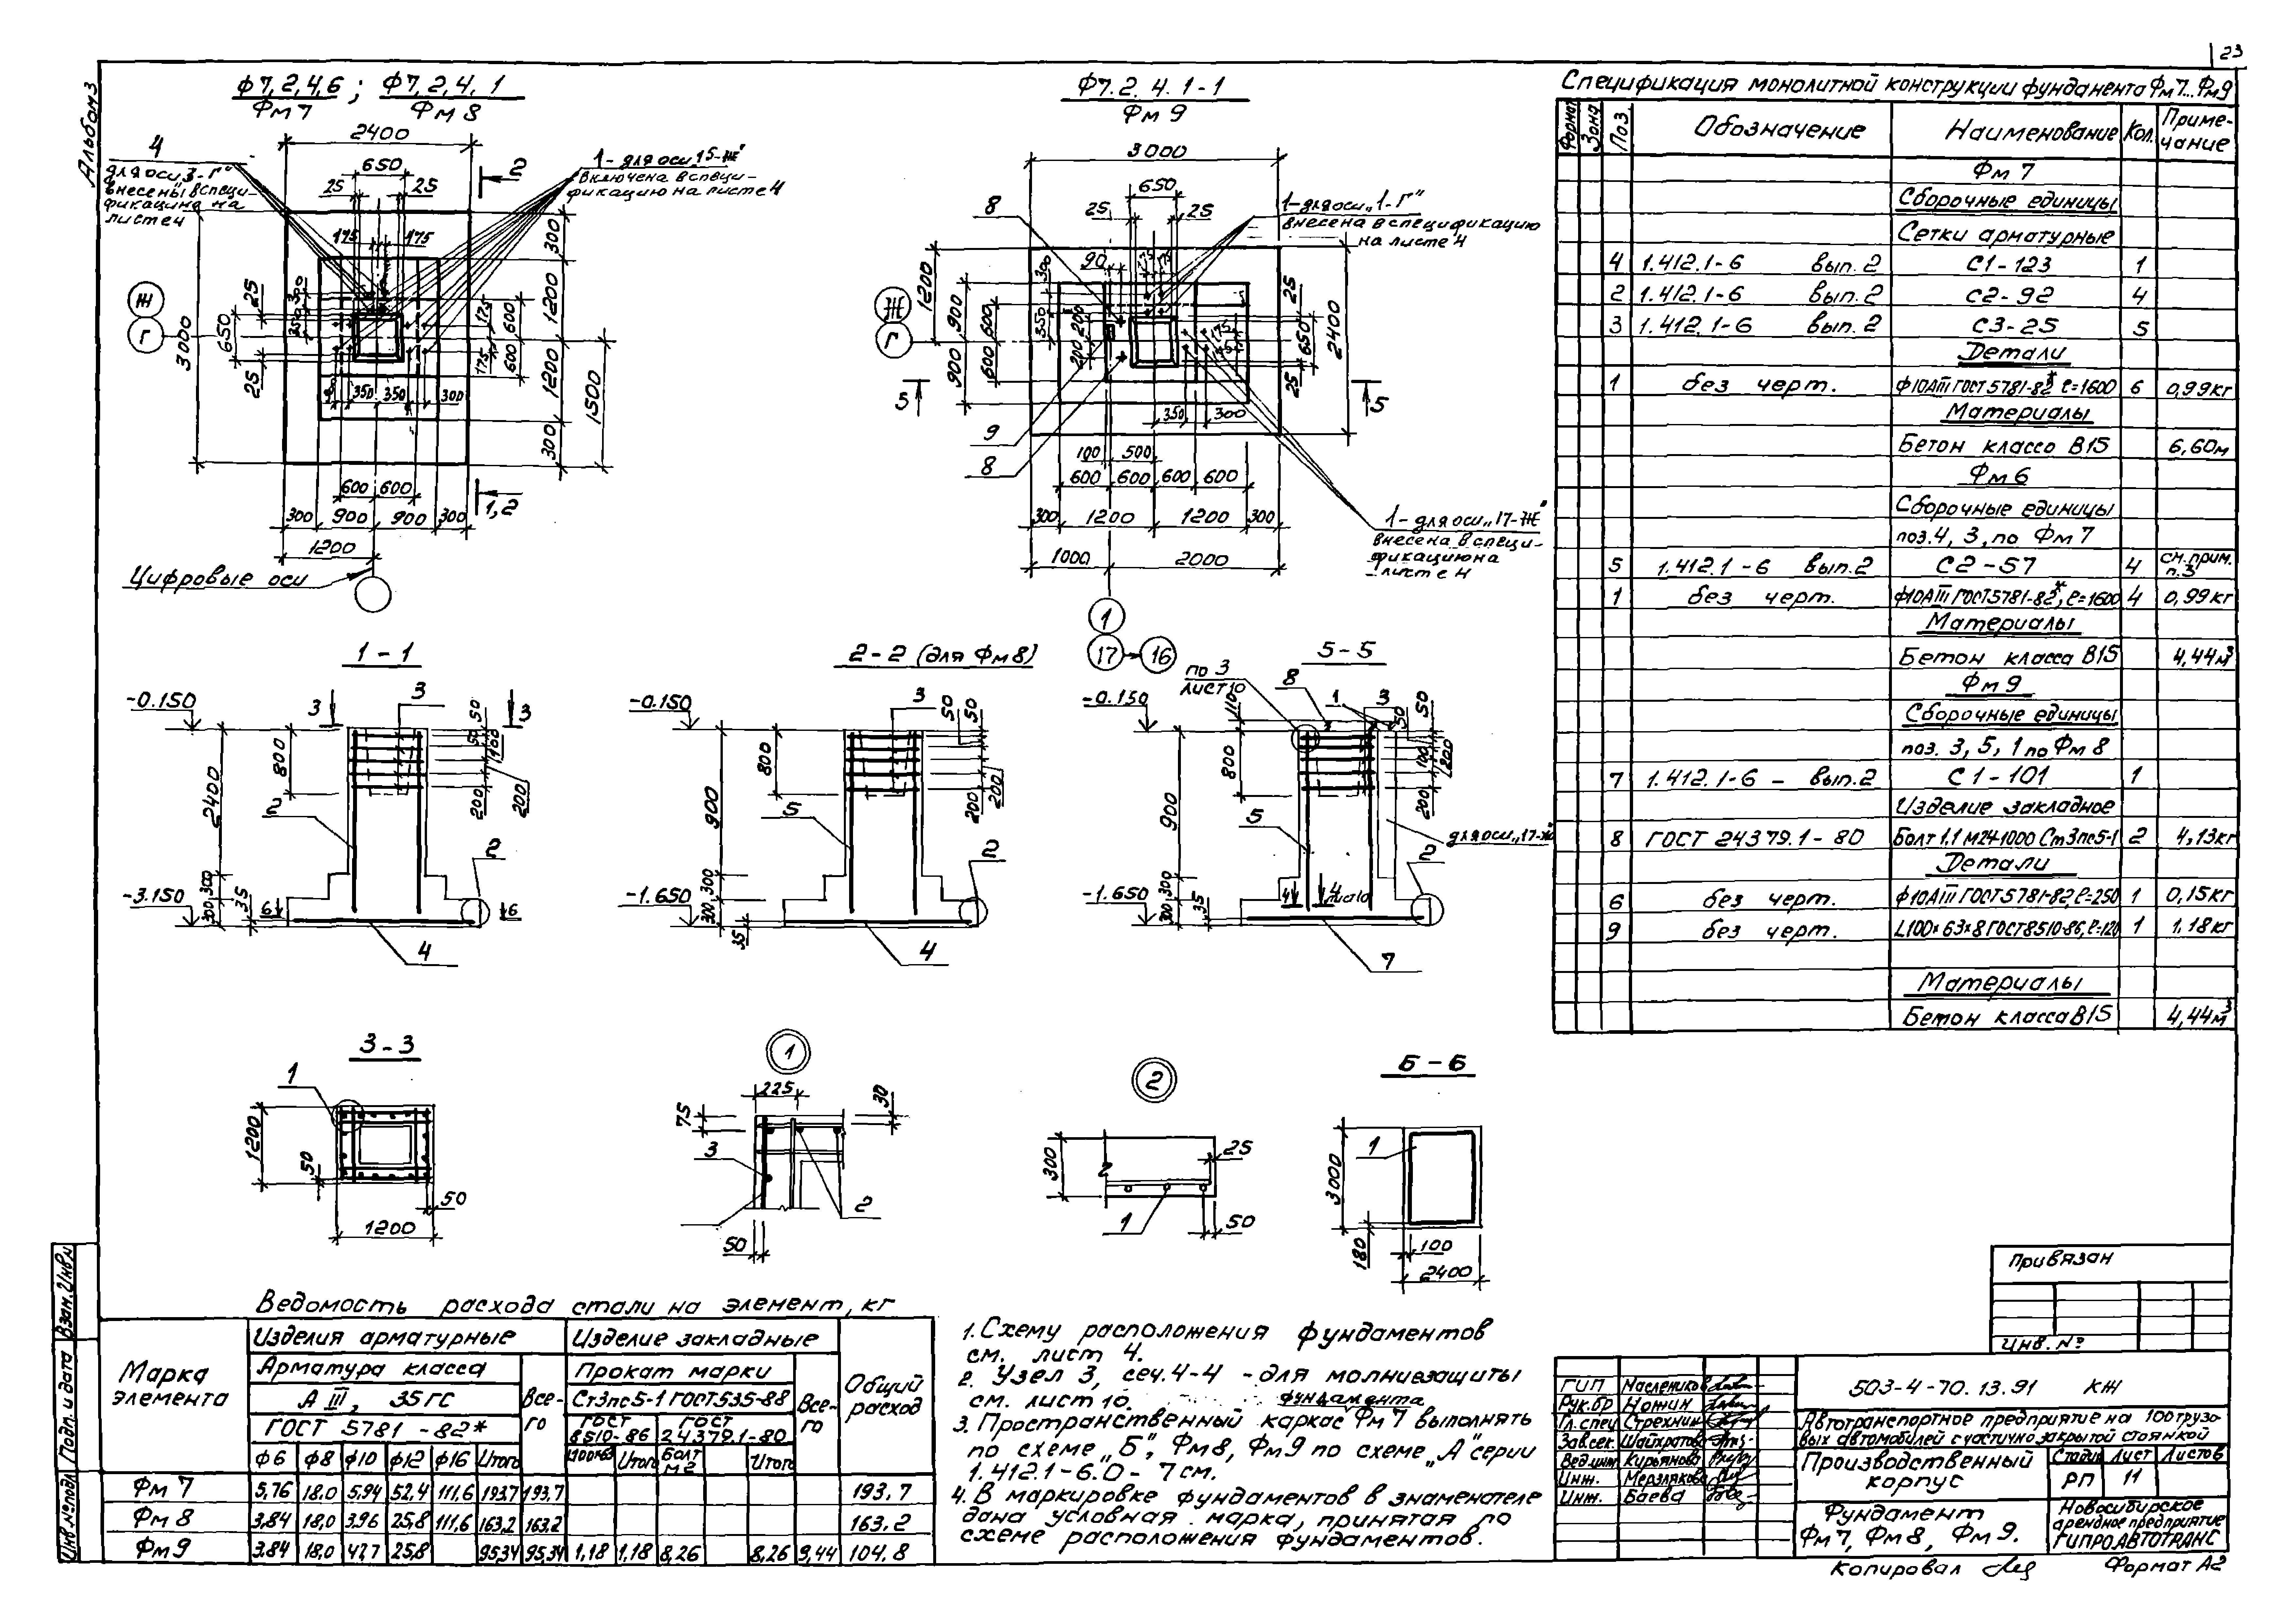 23
Альбом 3
Ф7,2,4,6 ; Ф7,2,4,1
Фм 7 Фм 8
2400
4
для оси 3-Г"
внесены в специ-
фикацина на
листе 4
650
25 25
1- для оси „15-Ж"
включена в специ-
фикацию на листе 4
2
175 175
300
1200
1200
300
600
600
175
175
1500
3000
650
25
25
Ж
Г
350 350 300
600 600
1,2
300 900 900 300
1200
Цифровые оси
Ф7.2.4.1-1
Фм 9
3000
650
25 25
8
1-для оси „1-Г"
внесена в спецификацию
на листе 4
90
1200
900
900
600
600
300
350
200
200
Ж
Г
25
650
25
2400
5 5
350 300
9
8
100 500
600 600 600 600
300 1200 1200 300
1000 2000
1- для оси „17-Ж"
внесена в специ-
фикацию на
листе 4
1
17 16
1-1
-0.150
3
3 3
50
50
100
200
200
800
2400
2
2
300
300
35
-3.150
6 6
4
2-2 (для Фм 8)
-0.150
3
50
50
200
200
800
900
5
2
300
300
35
-1.650
4
5-5
по 3
лист 10
8
1 3
-0.150
110
50
50
100
200
200
800
900
5
для оси „17-Ж"
2
300
300
35
-1.650
4 4
лист 10
7
3-3
1
1200
50
50
1200
1
225
75
30
3
2
50
2
300
25
2
1
50
Б-Б
1
3000
180
100
2400
Спецификация монолитной конструкции фундамента Фм7...Фм9
Формат Зона Поз Обозначение Наименование Кол. Приме-
чание
Фм 7
Сборочные единицы
Сетки арматурные
4 1.412.1-6 вып. 2 С1-123 1
2 1.412.1-6 вып. 2 С2-92 4
3 1.412.1-6 вып. 2 С3-25 5
Детали
1 без черт. Ф10АIII ГОСТ 5781-82* ℓ=1600 6 0,99кг
Материалы
Бетон классо В15 6,60м
Фм 6
Сборочные единицы
поз. 4, 3, по Фм 7
5 1.412.1-6 вып. 2 С2-57 4 см. прим.
п.3
1 без черт. Ф10АIII ГОСТ5781-82*, ℓ=1600 4 0,99кг
Материалы
Бетон класса В15 4,44м³
Фм 9
Сборочные единицы
поз. 3, 5, 1 по Фм 8
7 1.412.1-6 - вып. 2 С1-101 1
Изделие закладное
8 ГОСТ 24379.1-80 Болт 1.1 М24×1000 Ст3пс5-1 2 4,13кг
Детали
6 без черт. Ф10АIII ГОСТ 5781-82, ℓ=250 1 0,15кг
9 без черт. L100×63×8 ГОСТ8510-86, ℓ=120 1 1,18кг
Материалы
Бетон класса В15 4,44м³
Ведомость расхода стали на элемент, кг
Марка
элемента
Изделия арматурные Изделие закладные
Арматура класса Прокат марки
А III, 35ГС Ст3пс5-1 ГОСТ535-88
ГОСТ 5781-82* ГОСТ
8510-86 ГОСТ
24379.1-80
Все-
го
Все-
го
Общий
расход
Ф6 Ф8 Ф10 Ф12 Ф16 Итого Итого Болт Итого
Фм 7 5,76 18.0 5,94 52,4 111,6 193,7 193,7 193,7
Фм 8 3,84 18,0 3,96 25,8 111,6 163,2 163,2 163.2
Фм 9 3,84 18,0 47,7 25,8 95,34 95,34 1,18 1,18 8,26 8,26 9,44 104,8
1. Схему расположения фундаментов
см. лист 4.
2. Узел 3, сеч. 4-4 - для молниезащиты
см. лист 10.
фундамента
3. Пространственный каркас Фм 7 выполнять
по схеме „Б", Фм8, Фм9 по схеме „А" серии
1.412.1-6.0-7см.
4. В маркировке фундаментов в знаменателе
дана условная марка, принятая по
схеме расположения фундаментов.
Привязан
Инв. №
ГИП Маслеников
Рук.бр Ножин
Гл.спец Стрехнин
Зав.сек. Шайхратова
Вед.инж Кирьянова
Инж. Мерзлякова
Инж. Баева
503-4-70.13.91 КЖ
Автотранспортное предприятие на 100 грузо-
вых автомобилей с частично закрытой стоянкой
Производственный
корпус
Стадия Лист Листов
РП 11
Фундамент
Фм 7, Фм 8, Фм 9.
Новосибирское
арендное предприятие
ГИПРОАВТОТРАНС
Копировал Формат А2
Взам. инв. №
Подп. и дата
Инв. № подл